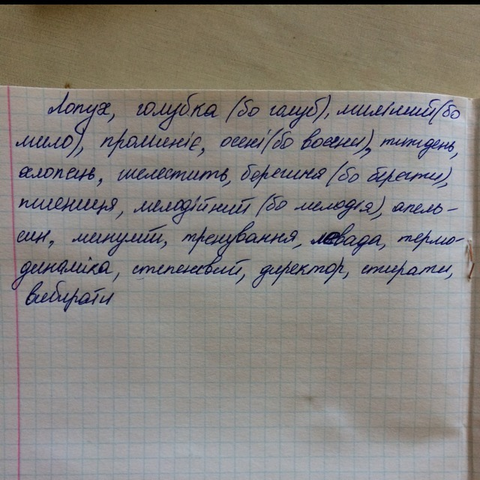 Лопух, голубка (бо голуб), милілий (бо
мило), променіє, осені (бо восени), тиждень,
хлопець, шелестить, берешся (бо берегти),
пшениця, мелодійний (бо мелодія), апель-
син, минулий, тренування, левада, термо-
динаміка, степеневий, директор, стирати,
вибирати